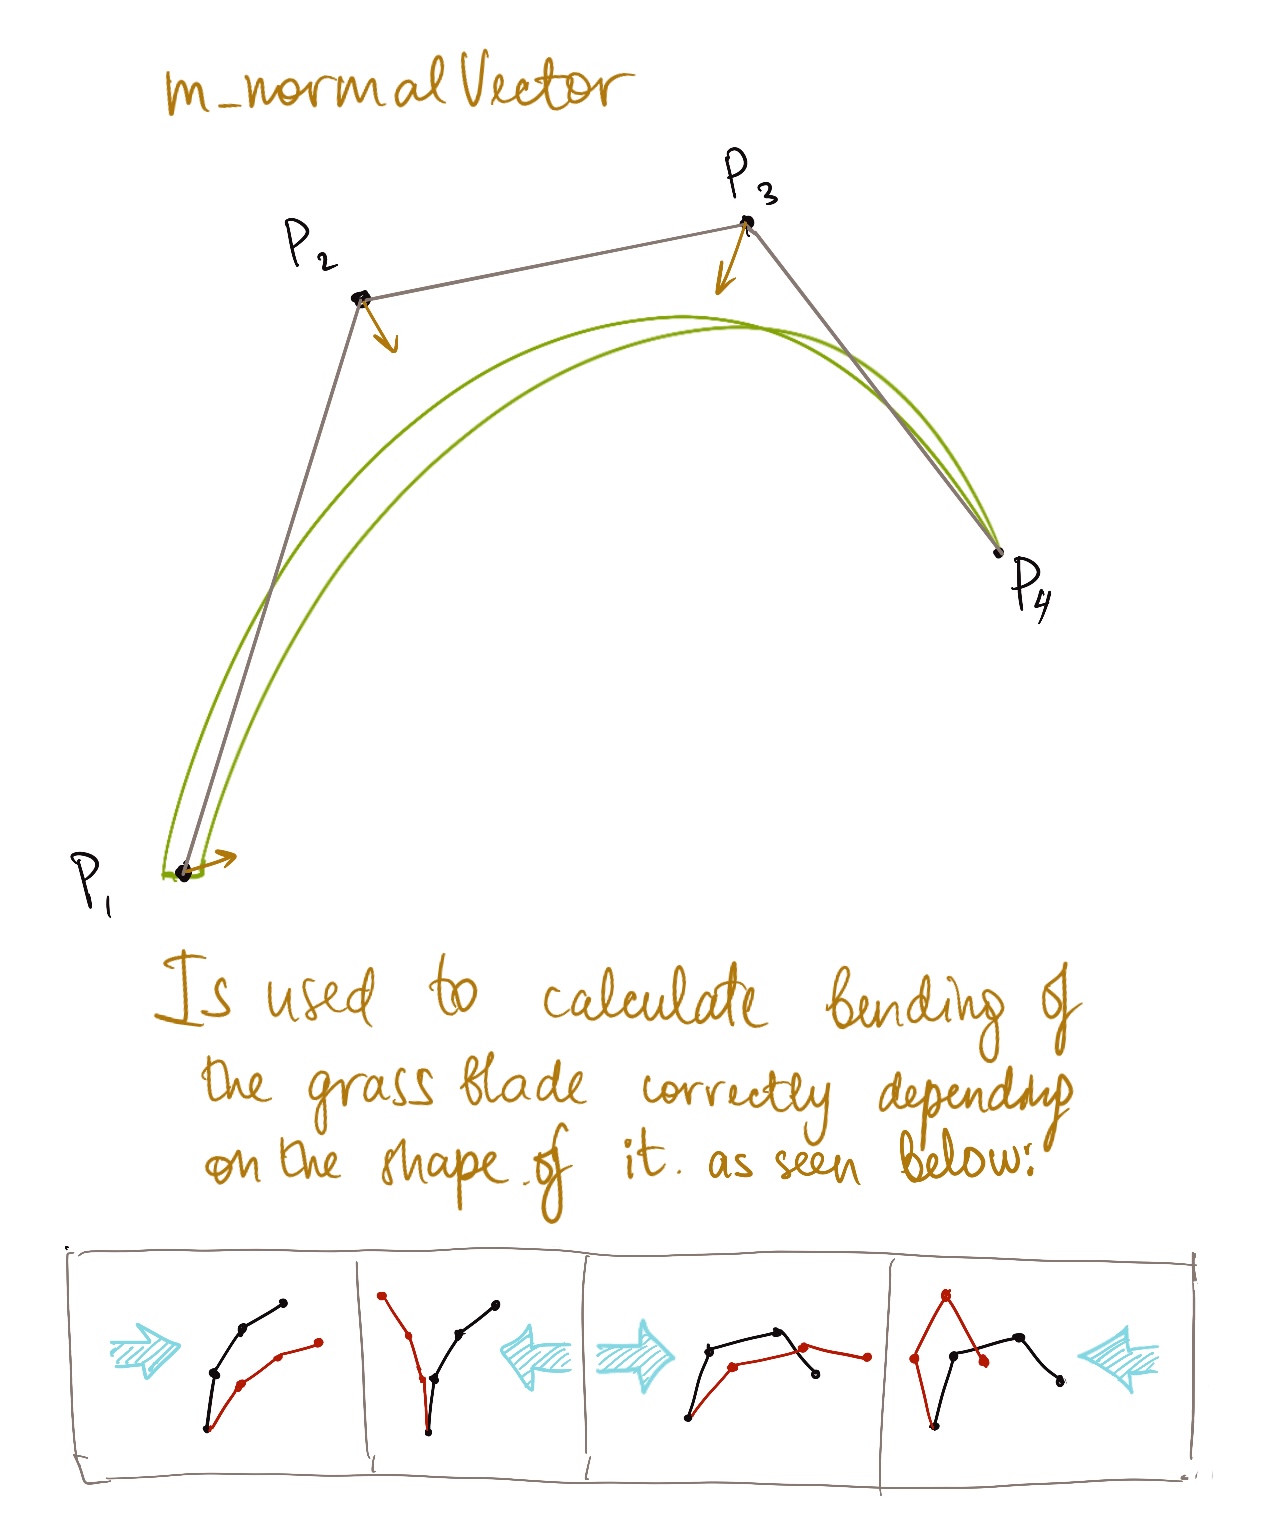 m_normalVector
P3
P2
P4
P1
Is used to calculate bending of
the grass blade correctly depending
on the shape of it. as seen below: